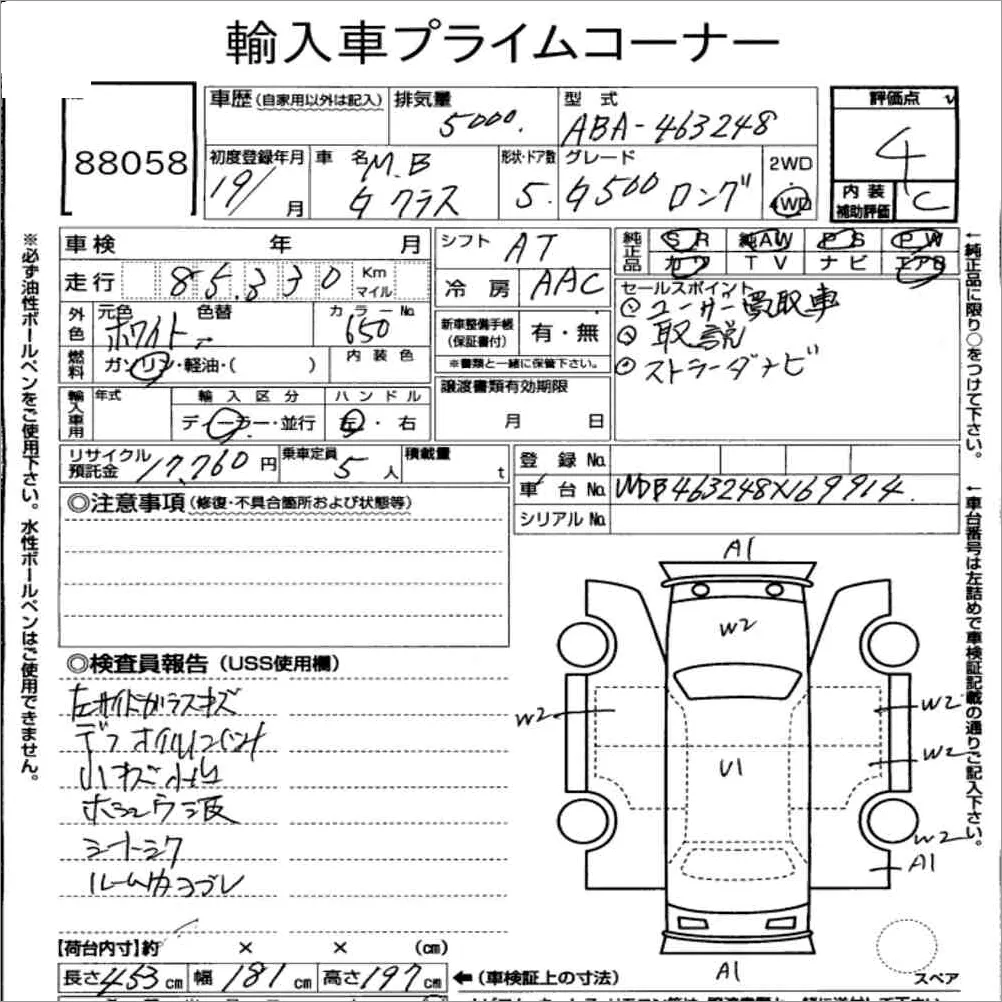 輸入車プライムコーナー
88058
車歴 (自家用以外は記入)
排気量 5000.
型式 ABA-463248
評価点 4
初度登録年月 19/ 月
車名 M.B Gクラス
形状・ドア数 5.
グレード G500 ロング
2WD
4WD
内装補助評価 C
車検 年 月
シフト AT
純正品 SR 純AW PS PW
カワ TV ナビ エアB
走行 85,330 Km マイル
冷房 AAC
セールスポイント
①ユーザー買取車
②取説
③ストラーダナビ
外色 元色 ホワイト 色替 カラーNo. 650
新車整備手帳 (保証書付) 有・無
※書類と一緒に保管下さい。
燃料 ガソリン・軽油・( ) 内装色
譲渡書類有効期限
月 日
輸入車用 年式 輸入区分 ハンドル
ディーラー・並行 左・右
リサイクル預託金 17,760円 乗車定員 5人 積載量 t
登録No.
車台No. WDB463248X169914.
シリアルNo.
◎注意事項 (修復・不具合箇所および状態等)
◎検査員報告 (USS使用欄)
左サイドガラスキズ
デフオイル
小キズ小凹
シートシワ
ルーム内ヨゴレ
A1
W2
W2
W2
W2
U1
W2
A1
A1
スペア
【荷台内寸】約 × × (cm)
長さ453cm 幅181cm 高さ197cm ←(車検証上の寸法)
※必ず油性ボールペンをご使用下さい。水性ボールペンはご使用できません。
←純正品に限り○をつけて下さい。
←車台番号は左詰めで車検証記載の通りご記入下さい。